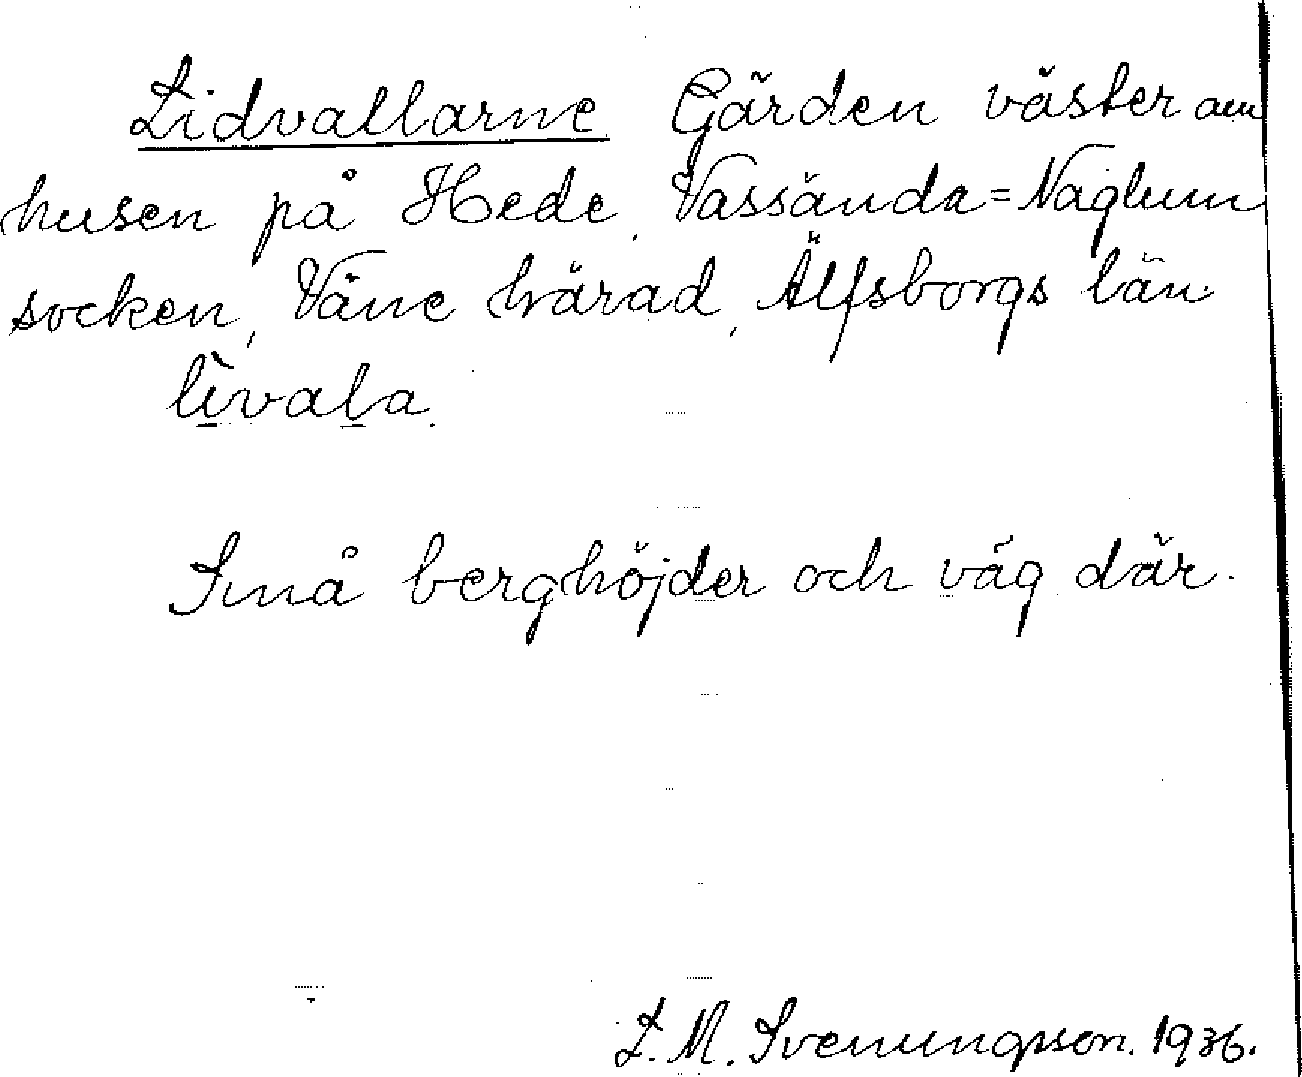 Lidvallarne. Gärden väster om
husen på Hede, Vassända=Naglum
socken, Väne härad, Älfsborgs län.
lìvala.
Små berghöjder och väg där.
L. M. Svenungsson. 1936.